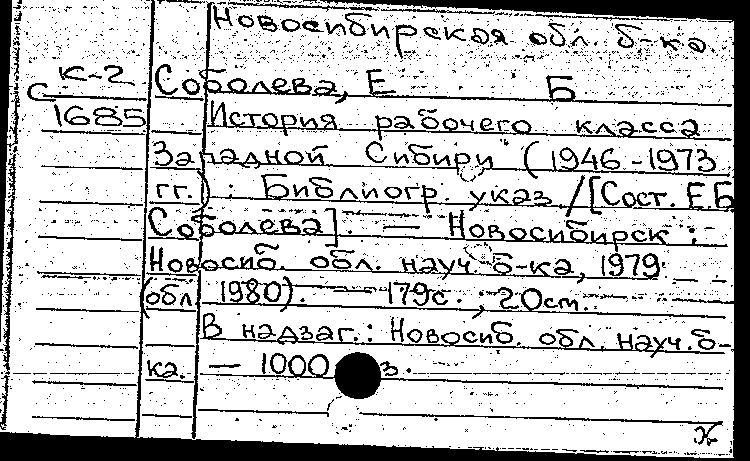 Новосибирская обл. б-ка
К-2 Соболева, Е Б
С
1685 История рабочего класса
Западной Сибири (1946-1973
гг.) : Библиогр. указ. /[Сост. Е.Б
Соболева]. — Новосибирск :
Новосиб. обл. науч. б-ка, 1979
(обл. 1980). — 179с. ; 20см.
В надзаг.: Новосиб. обл. науч. б-
ка. — 1000 з.